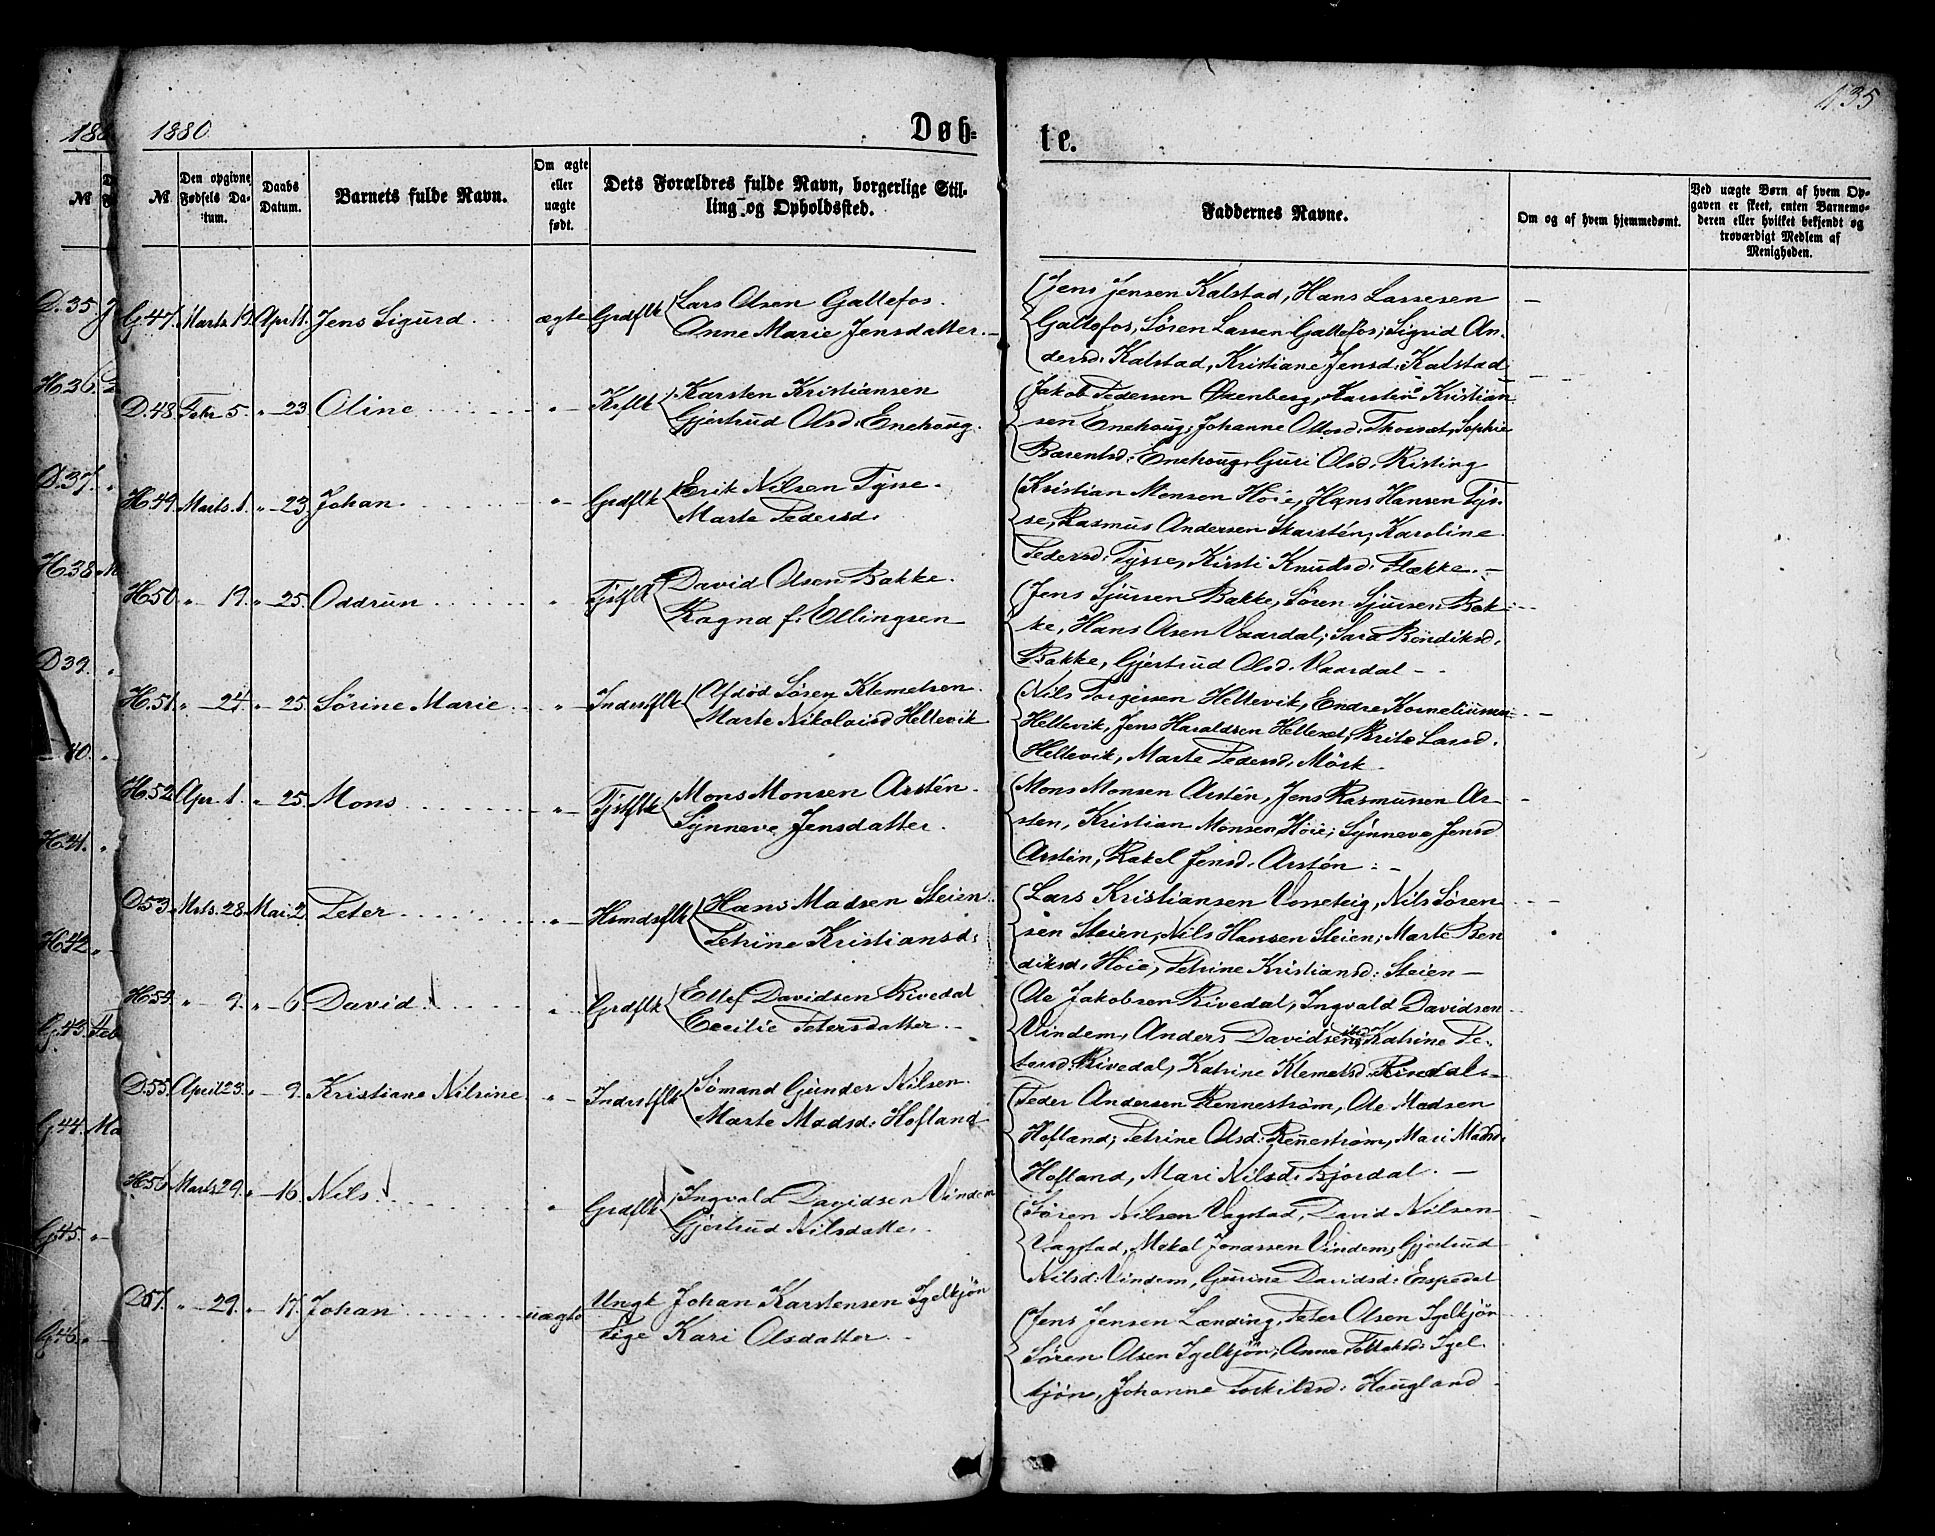 1880
Døb-
te.
135
№
Den opgivne Fødsels Datum.
Daabs Datum.
Barnets fulde Navn.
Om ægte eller uægte født.
Dets Forældres fulde Navn, borgerlige Stilling og Opholdssted.
Faddernes Navne.
Om og af hvem hjemmedømt.
Ved uægte Børn af hvem Opgaven er skeet, enten Barnemoderen eller hvilket bekjendt og troværdigt Medlem af Menigheden.
D.35.
H.36
D.37.
H.38
D39.
40.
H.41.
H.42
G.43. Feb
G.44. Ma
G.45.
G.46.
G.47. Marts 19. Apr 11. Jens Sigurd ægte Grdflk Lars Olsen Galtefos.
Anne Marie Jensdatter.
Jens Jensen Kalstad, Hans Larssen
Galtefos, Søren Larsen Galtefos; Sigrid An-
dersd: Kalstad, Kristiane Jensd: Kalstad
D.48. Febr 5. " 23. Oline " Karsten Kristiansen
Gjertrud Olsd: Enehoug.
Jakob Pedersen Oxenberg, Karsten Kristian-
sen Enehoug; Johanne Olsd: Sophie
Barentsd: Enehoug, Guri Olsd: Risting
H.49. Marts 1. " 23. Johan. " Grdflk Erik Nilsen Tysse.
Marte Pedersd.
Kristian Monsen Høie, Hans Hansen Tys-
se, Rasmus Andersen Skarstén, Karoline
Pedersd: Tysse, Kirsti Knudsd: Flække.
H50 " 19. " 25. Oddrun " David Olsen Bakke.
Ragna f. Ellingsen
Jens Sjursen Bakke, Søren Sjursen Bak-
ke, Hans Olsen Vaardal; Sara Bendiksd.
Bakke, Gjertrud Olsd. Vaardal
H.51. " 24. " 25. Sørine Marie " Indrstflk Afdød Søren Klemetsen.
Marte Nikolaisd Hellevik
Nils Torgersen Hellevik, Endre Korneliussen
Hellevik, Jens Haraldsen Helleset; Brite Larsd.
Hellevik, Marte Pedersd. Mörk.
H.52 Apr. 1. " 25. Mons " Tjstflk Mons Monsen Arstén.
Synneve Jensdatter.
Mons Monsen Arstén, Jens Rasmussen Ar-
sten, Kristian Monsen Høie; Synneve Jensd
Arstén, Rakel Jensd. Arstén
D.53. Mrts. 28. Mai. 2 Peter " Hsmdsflk Hans Madsen Steien.
Petrine Kristiansd:
Lars Kristiansen Nils Søren-
sen Steien, Nils Hansen Steien; Marte Ben-
diksd. Høie, Petrine Kristiansd: Steien
H54 " 9. " 6. David. " Grdflk Ellef Davidsen Rivedal
Cecilie Petersdatter.
Ole Jakobsen Rivedal, Ingvald Davidsen
Vindem, Anders Davidsen ibid Katrine Pe-
tersd. Rivedal, Katrine Klemetsd. Rivedal.
D.55. April 23. " 9. Kristiane Nilsine " Indrstflk Sømand Gunder Nilsen.
Marte Madsd: Hofland
Peder Andersen Renneström, Ole Madsen
Hofland; Petrine Olsd: Reneström, Mari Madsd:
Hofland, Mari Nilsd: Bjordal.
H.56 Marts 29. " 16. Nils. " Grdflk Ingvald Davidsen Vindem
Gjertrud Nilsdatter.
Søren Nilsen Vagstad, David Nilsen
Vagstad, Mikal Jonassen Vindem; Gjertrud
Nilsd: Vindem, Gurine Davidsd: Espedal
D.57. " 29. " 17. Johan uægte Ungk Johan Karstensen Igelkjön
Pige Kari Olsdatter.
Jens Jensen Lænding, Peter Olsen Igelkjön
Søren Olsen Igelkjön; Anna Igel-
kjön, Johanne Torkildsd: Hougland